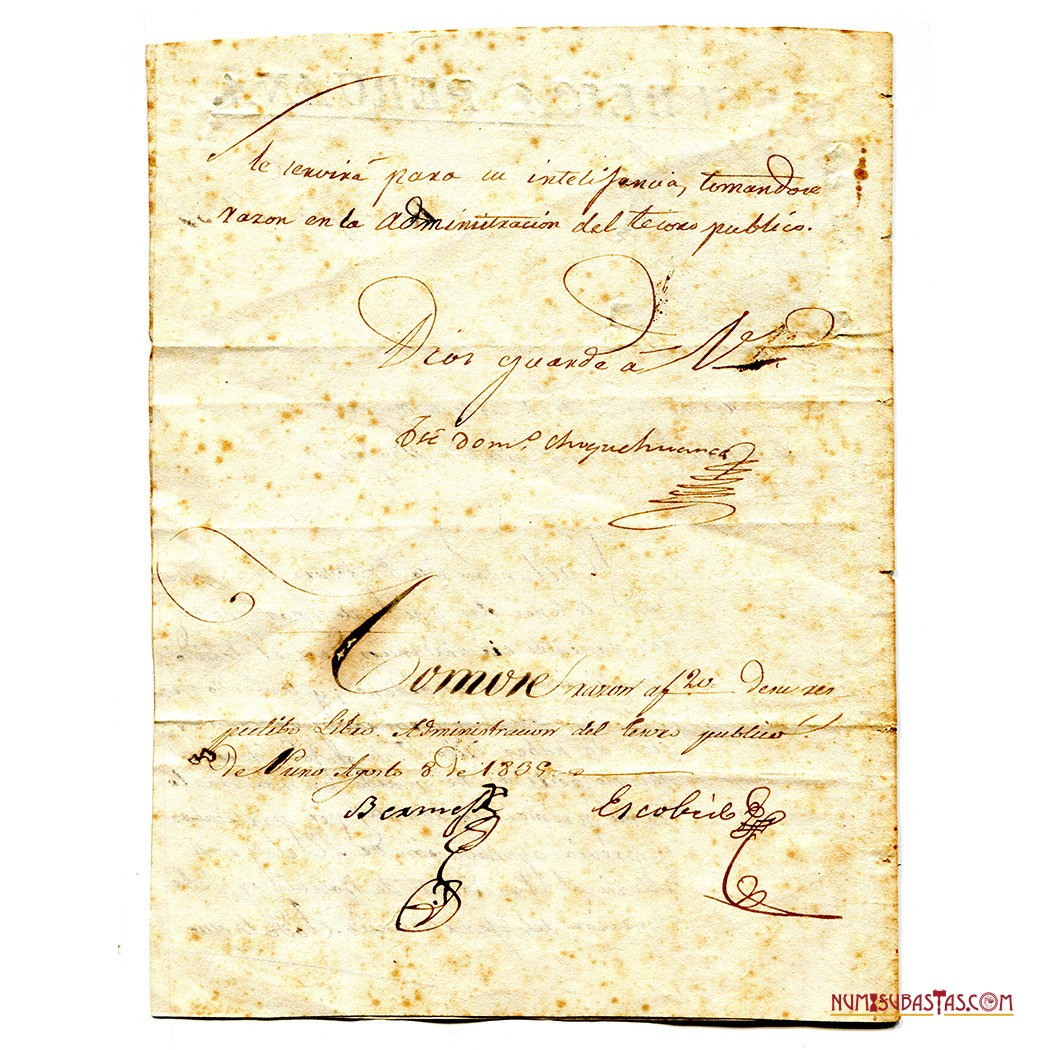 le servirá para su inteligencia, tomandose
razon en la administración del tesoro publico.
Dios guarde á V
José Dom.º Choquehuanca
Tomose razon af 20 de su res
pectibo Libro. Administracion del tesoro publico
de Puno Agosto 8 de 1839.
Escobedo
NUMISUBASTAS.COM